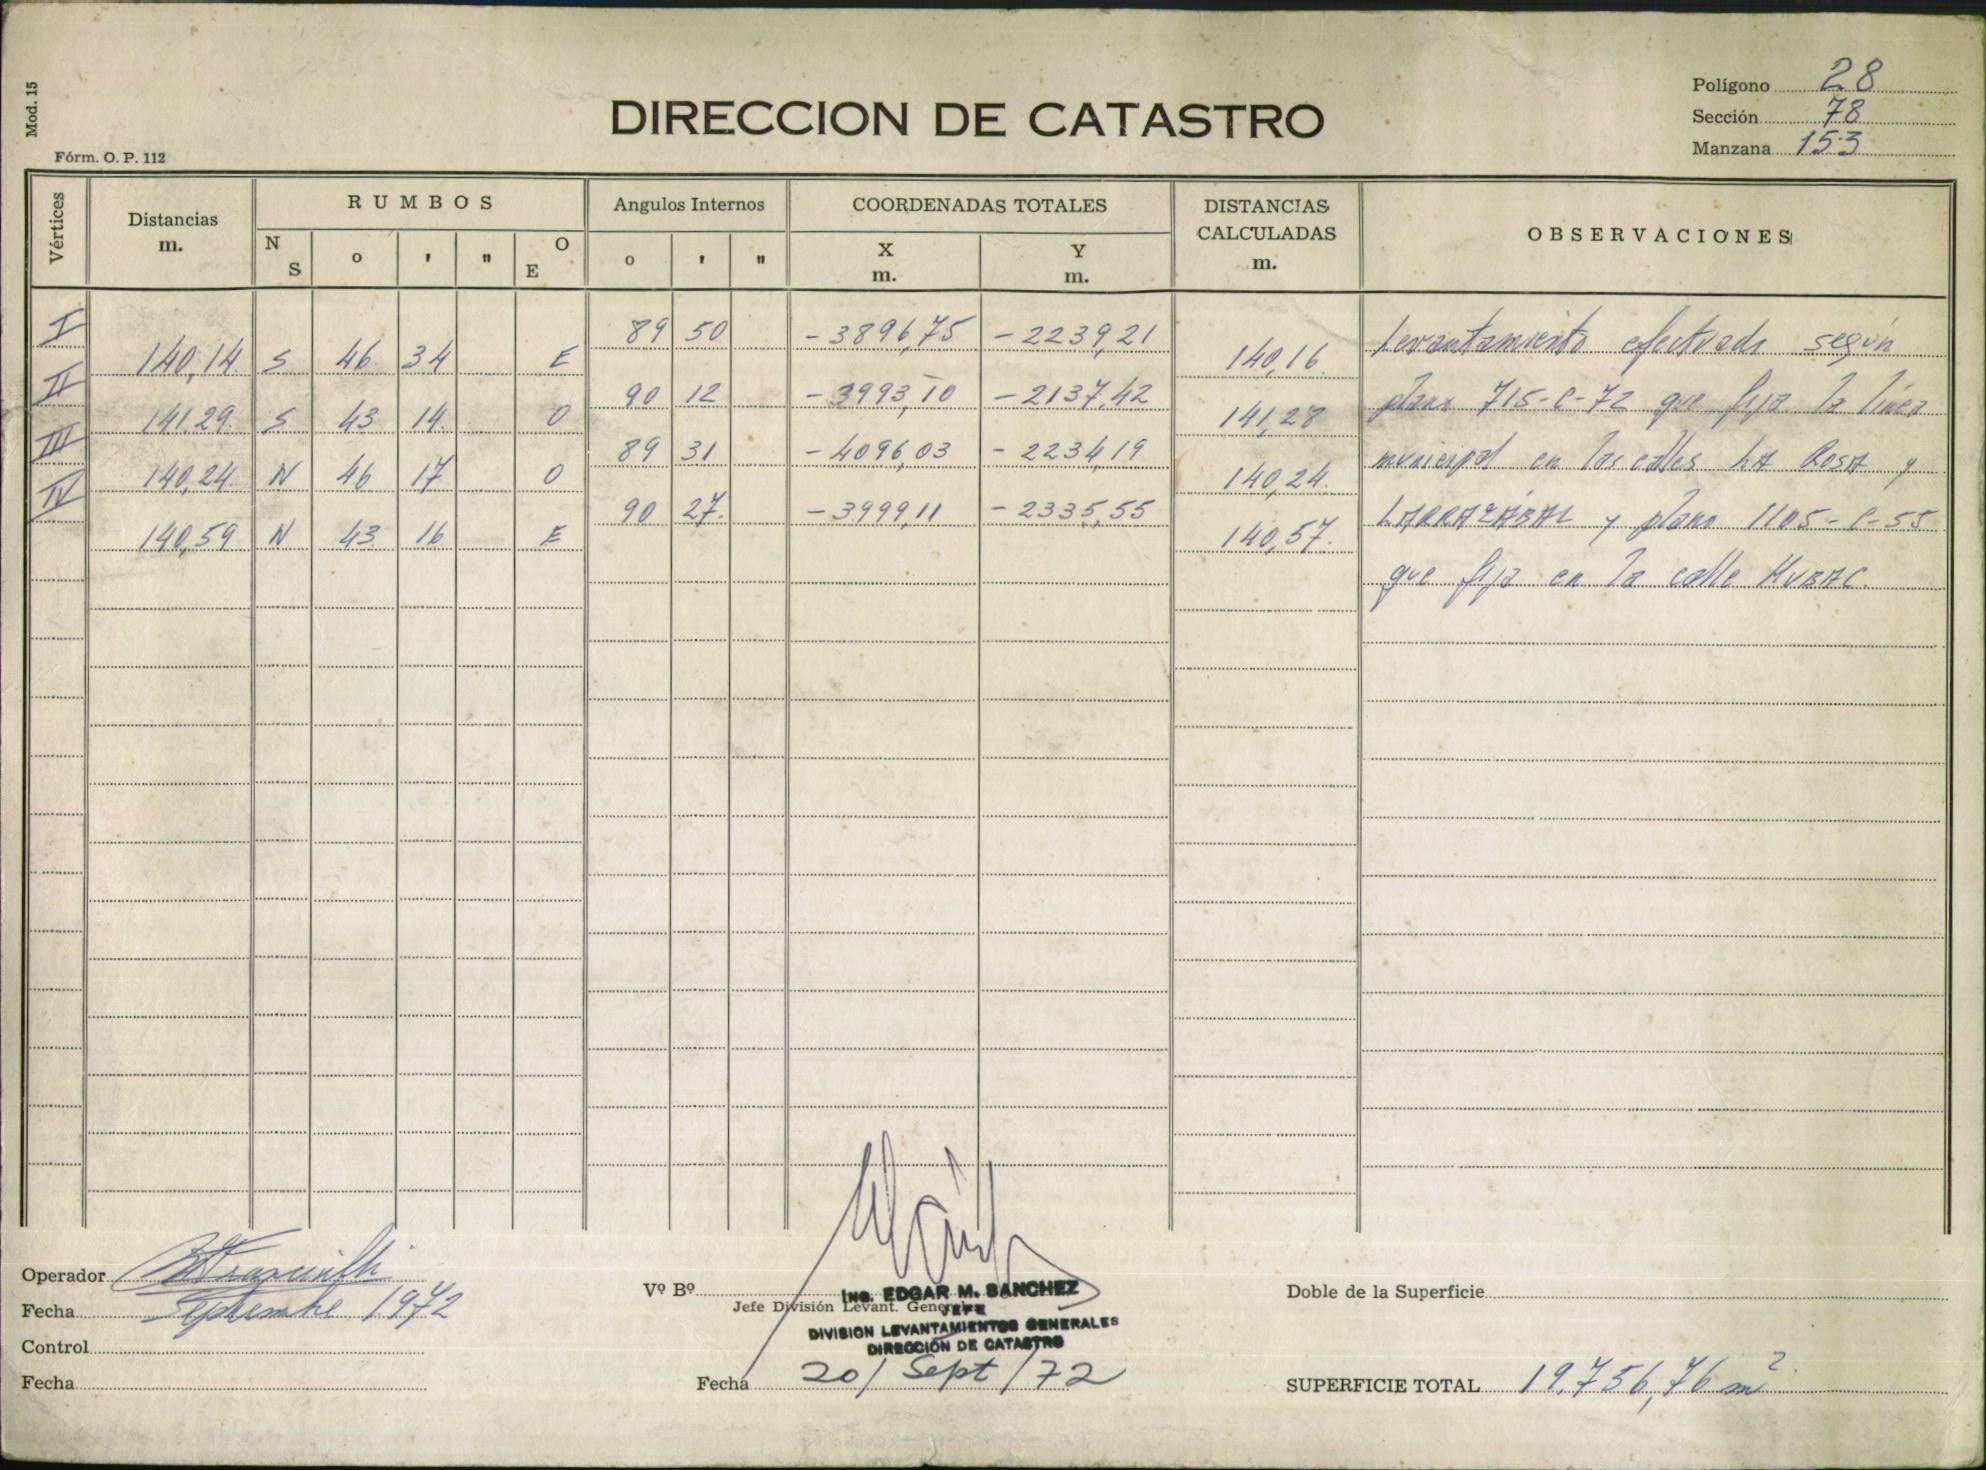 Mod. 15
Fórm. O. P. 112
DIRECCION DE CATASTRO
Polígono 28
Sección 78
Manzana 153
Vértices Distancias m. RUMBOS N S o ' " O E Angulos Internos o ' " COORDENADAS TOTALES X m. Y m. DISTANCIAS CALCULADAS m. OBSERVACIONES
I 89 50 -3896,75 -2239,21 Levantamiento efectuado según
140,14 S 46 34 E 140,16
II 90 12 -3993,10 -2137,42 plano 715-C-72 que fija la línea
141,29 S 43 14 O 141,28
III 89 31 -4096,03 -2234,19 municipal en las calles LA ROSA y
140,24 N 46 17 O 140,24
IV 90 27 -3999,11 -2335,55 LARRAZÁBAL y plano 1105-C-55
140,59 N 43 16 E 140,57
que fija en la calle
Operador
Fecha Septiembre 1972
Control
Fecha
Vº Bº
Jefe División Levant. Generales
ING. EDGAR M. SANCHEZ
JEFE
DIVISION LEVANTAMIENTOS GENERALES
DIRECCIÓN DE CATASTRO
Fecha 20/Sept/72
Doble de la Superficie
SUPERFICIE TOTAL 19.756,76 m²